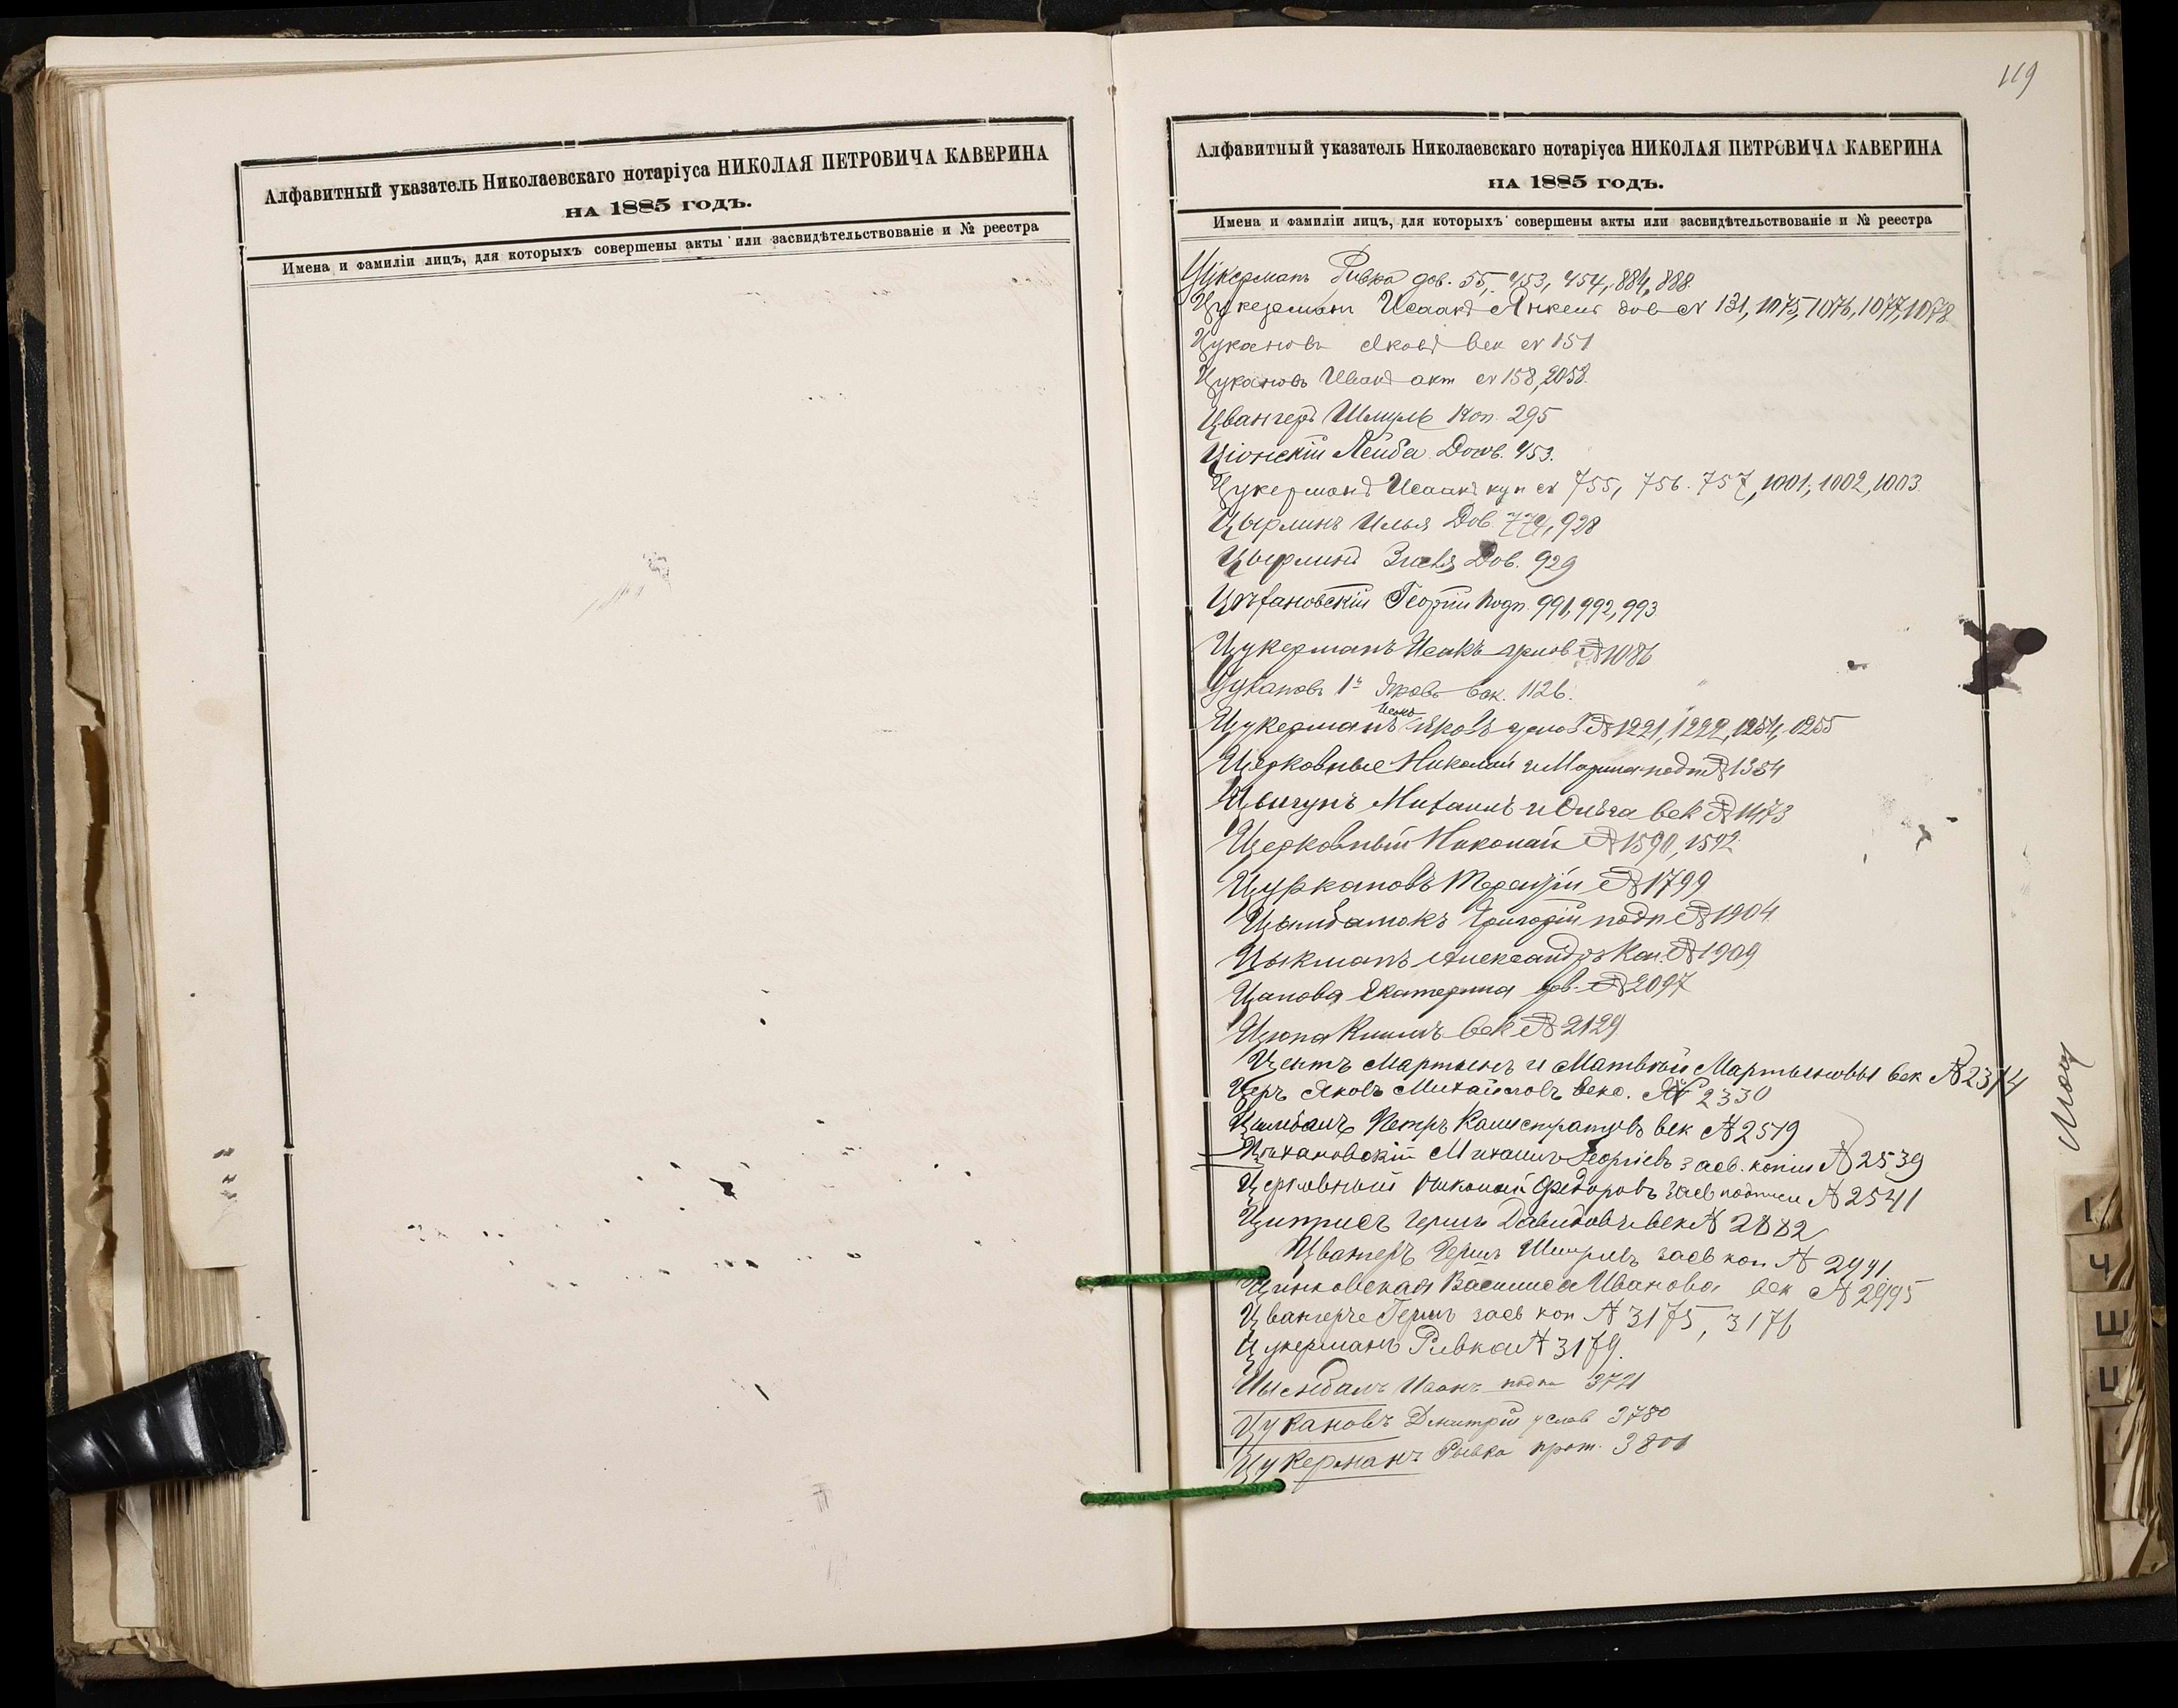 Алфавитный указатель Николаевскаго нотаріуса НИКОЛАЯ ПЕТРОВИЧА КАВЕРИНА
НА 1885 ГОДЪ.
Имена и фамиліи лицъ, для которыхъ совершены акты или засвидѣтельствованіе и № реестра
119
Алфавитный указатель Николаевскаго нотаріуса НИКОЛАЯ ПЕТРОВИЧА КАВЕРИНА
НА 1885 ГОДЪ.
Имена и фамиліи лицъ, для которыхъ совершены акты или засвидѣтельствованіе и № реестра
Цукерманъ Ривка дов. 55, 453, 454, 884, 888
Цукерманъ Исаакъ Янкель дов № 131, 1075, 1076, 1077, 1078
Цукановъ Яковъ век № 151
Цукановъ Иванъ акт № 158, 2058.
Цвангеръ Шмуль Коп. 295
Ціонскій Лейба Догов. 453.
Цукерманъ Исаакъ куп № 755, 756. 757, 1001, 1002, 1003
Цырлинъ Илья Дов. 774, 928
Цырлинъ Дов. 929
Цѣхановскій Георгій подп. 991, 992, 993
Цукерманъ Исакъ услов № 1086
Цукановъ Яковъ век. 1126.
Цукерманъ Исакъ услов № 1221, 1222, 1254, 1255
Церковные Николай и Марина подп № 1384
Цыгунъ Михаилъ и Ольга век № 1473
Церковный Николай № 1590, 1592
Цуркановъ Терентій № 1799
Цымбалюкъ Григорій подп № 1904
Цыкманъ Александръ Коп. № 1909
Цапова Екатерина дов. № 2097
Цюпа век № 2129
Центъ Мартынъ и Матвѣй Мартыновы век № 2314
Церъ Яковъ Михайловъ векс. № 2330
Цымбалъ Петръ Калистратовъ век № 2519
Цѣхановскій Михаилъ Георгіевъ засв. копіи № 2539
Церковный Николай Федоровъ засв подписи № 2541
Циприсъ Гершъ Давидовъ век № 2882
Цвангеръ Гершъ Шмулевъ засв коп № 2941
Цинковская Василиса Иванова век № 2995
Цвангеръ Гершъ засв коп № 3175, 3176
Цукерманъ Ривка № 3179.
Цымбалъ Иванъ подп 3721
Цукановъ Дмитрій услов 3780
Цукерманъ Рывка прот. 3801
Ч
Ш